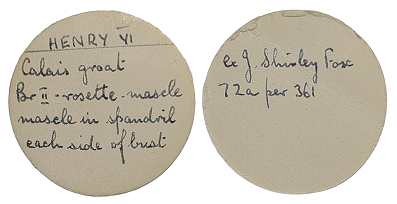 HENRY VI
Calais groat
Br II - rosette - mascle
mascle in spandril
each side of bust
ex J. Shirley Fox
72a per 361